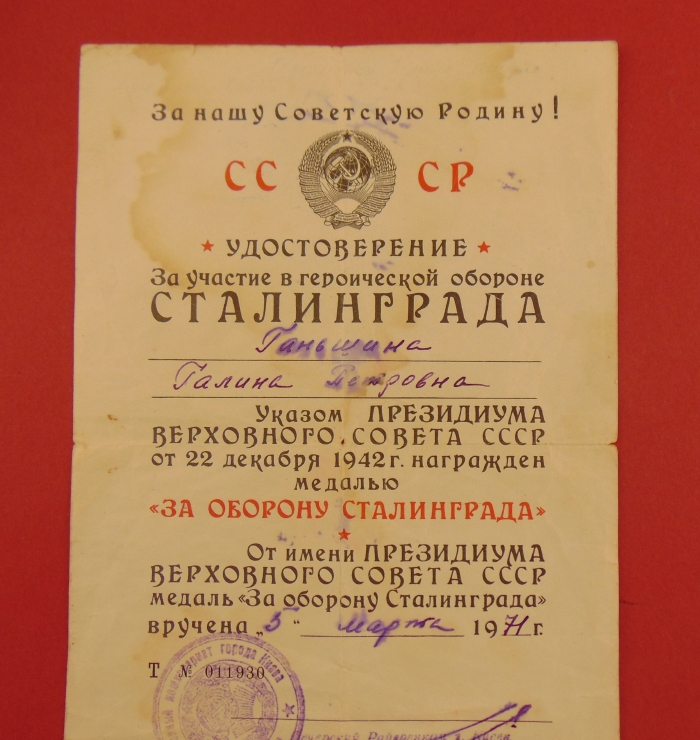 За нашу Советскую Родину!
СС СР
УДОСТОВЕРЕНИЕ
За участие в героической обороне
СТАЛИНГРАДА
Ганьшина
Галина Петровна
Указом ПРЕЗИДИУМА
ВЕРХОВНОГО СОВЕТА СССР
от 22 декабря 1942 г. награжден
медалью
«ЗА ОБОРОНУ СТАЛИНГРАДА»
От имени ПРЕЗИДИУМА
ВЕРХОВНОГО СОВЕТА СССР
медаль «За оборону Сталинграда»
вручена „5“ Марта 1971 г.
комиссариат города Киева
Т № 011930